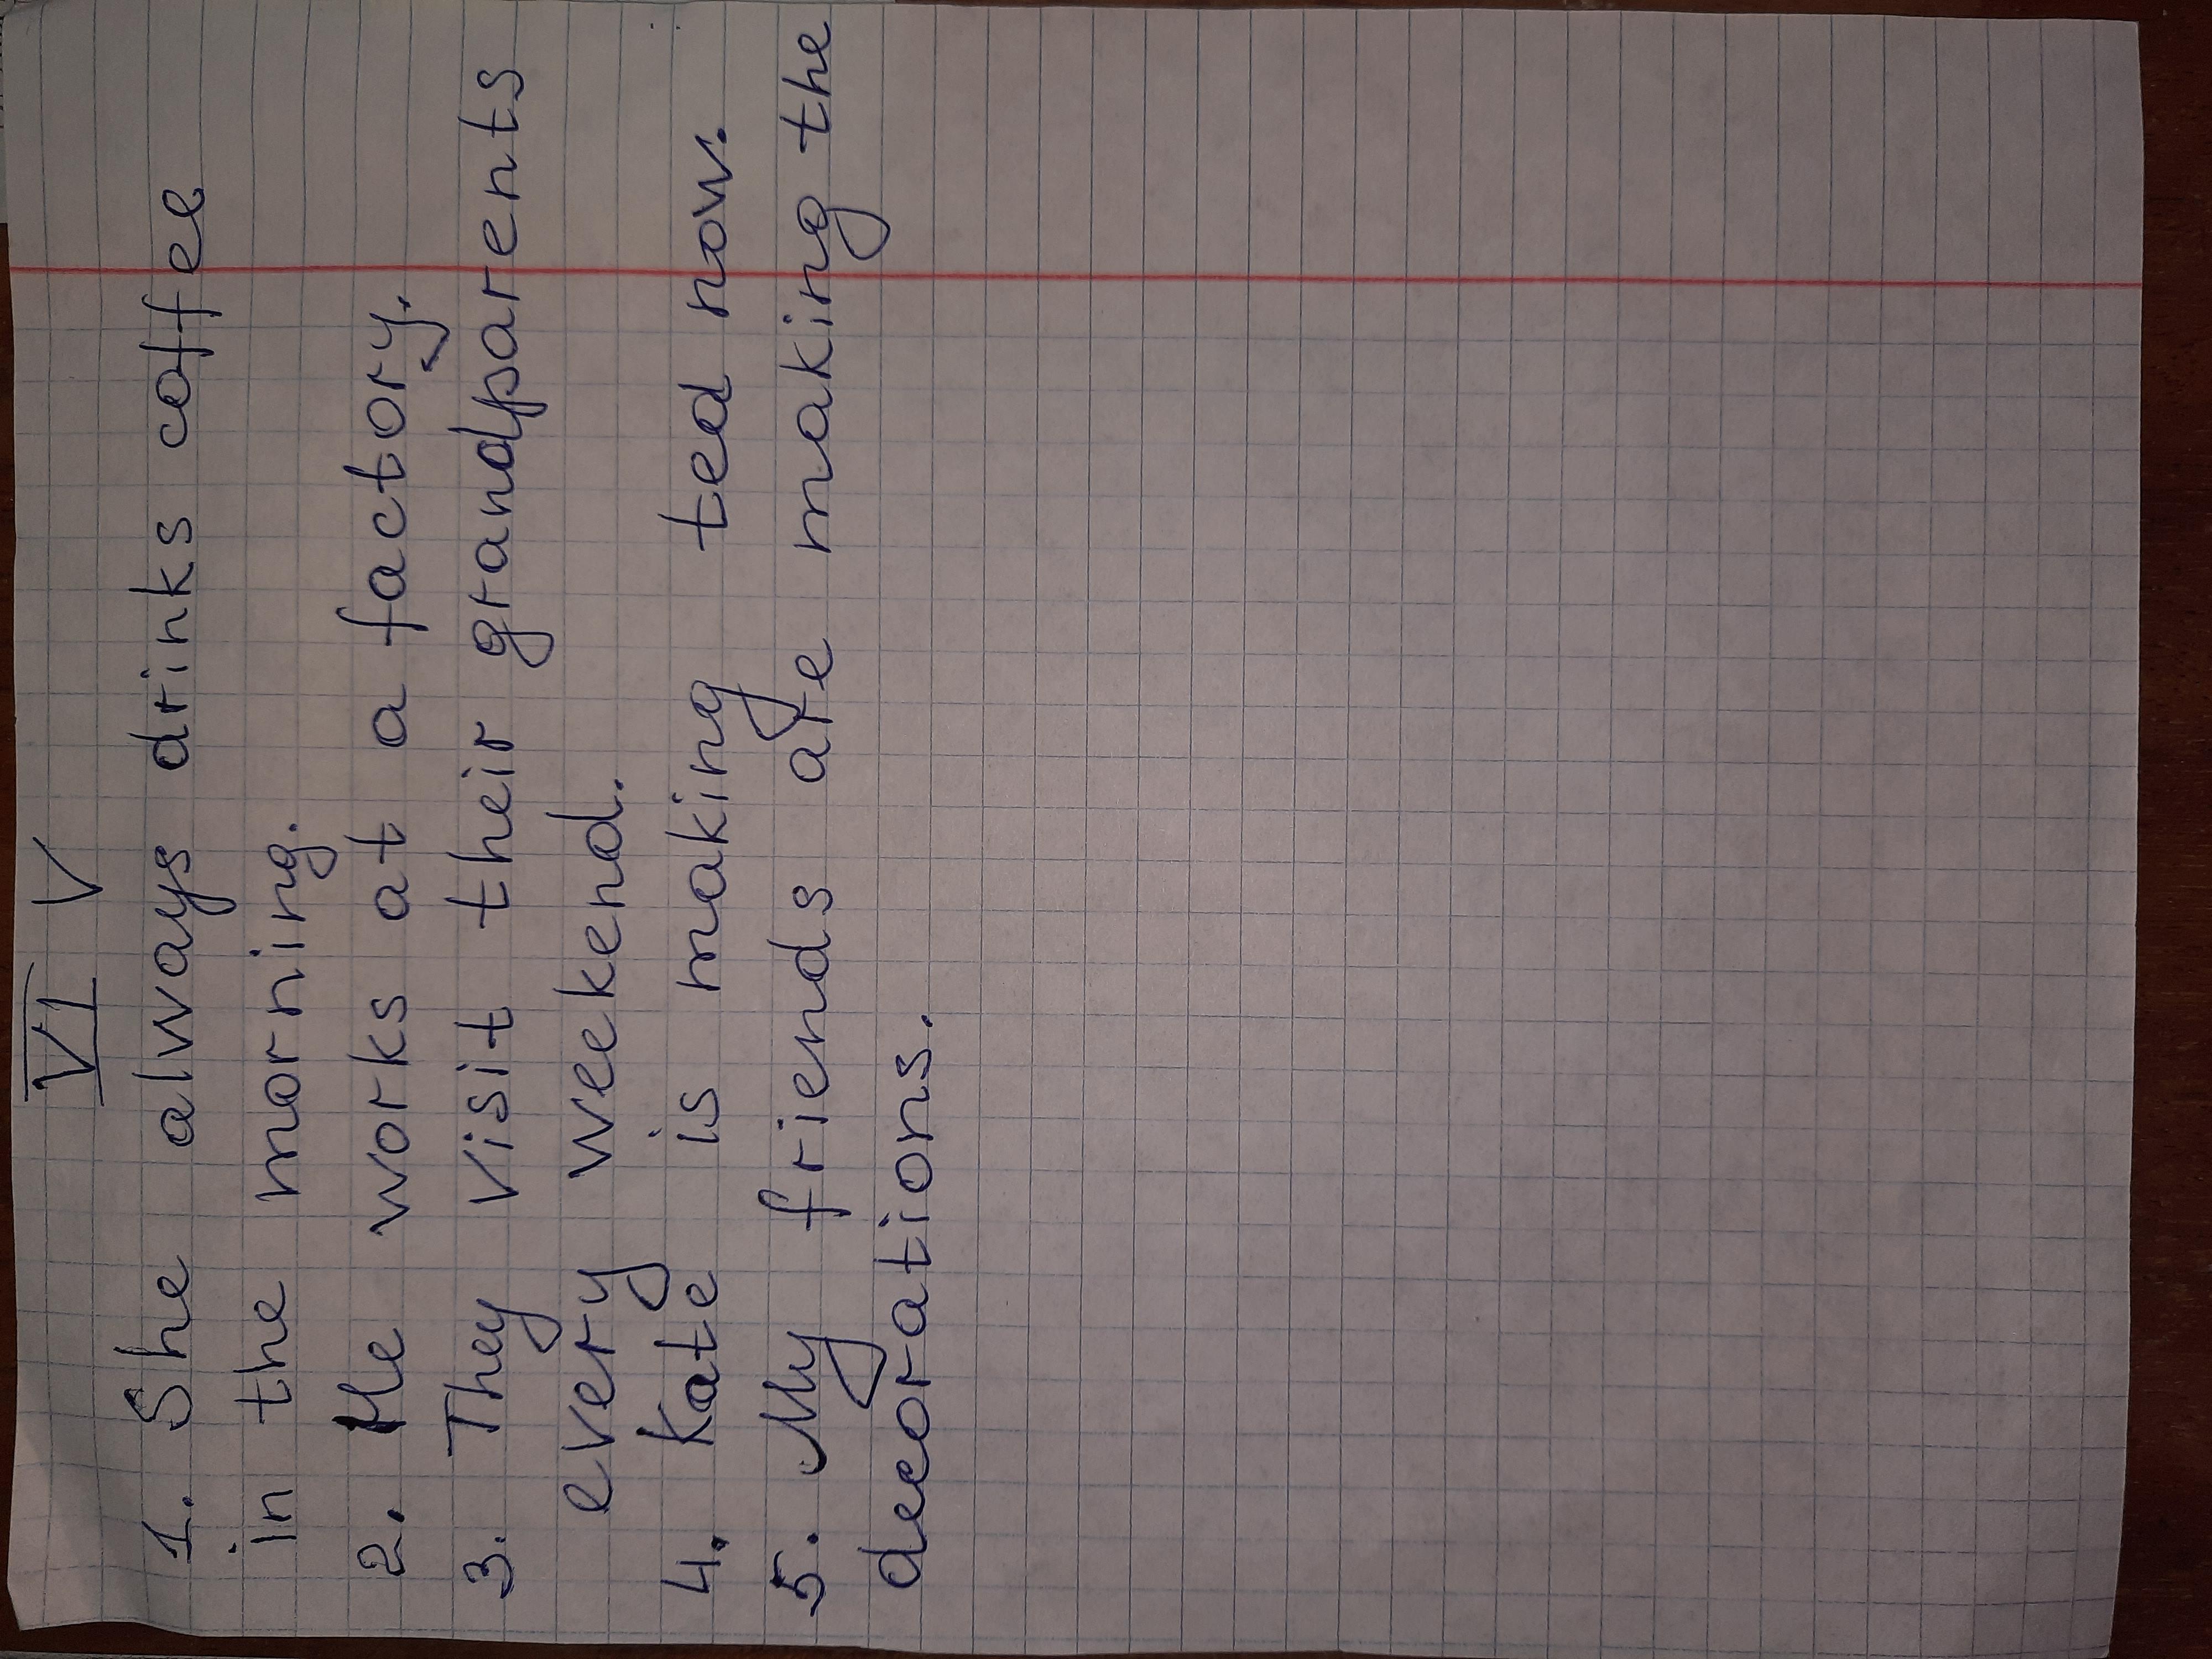 VI V
1. She always drinks coffee
in the morning.
2. He works at a factory.
3. They visit their grandparents
every weekend.
4. Kate is making tea now.
5. My friends are making the
decorations.